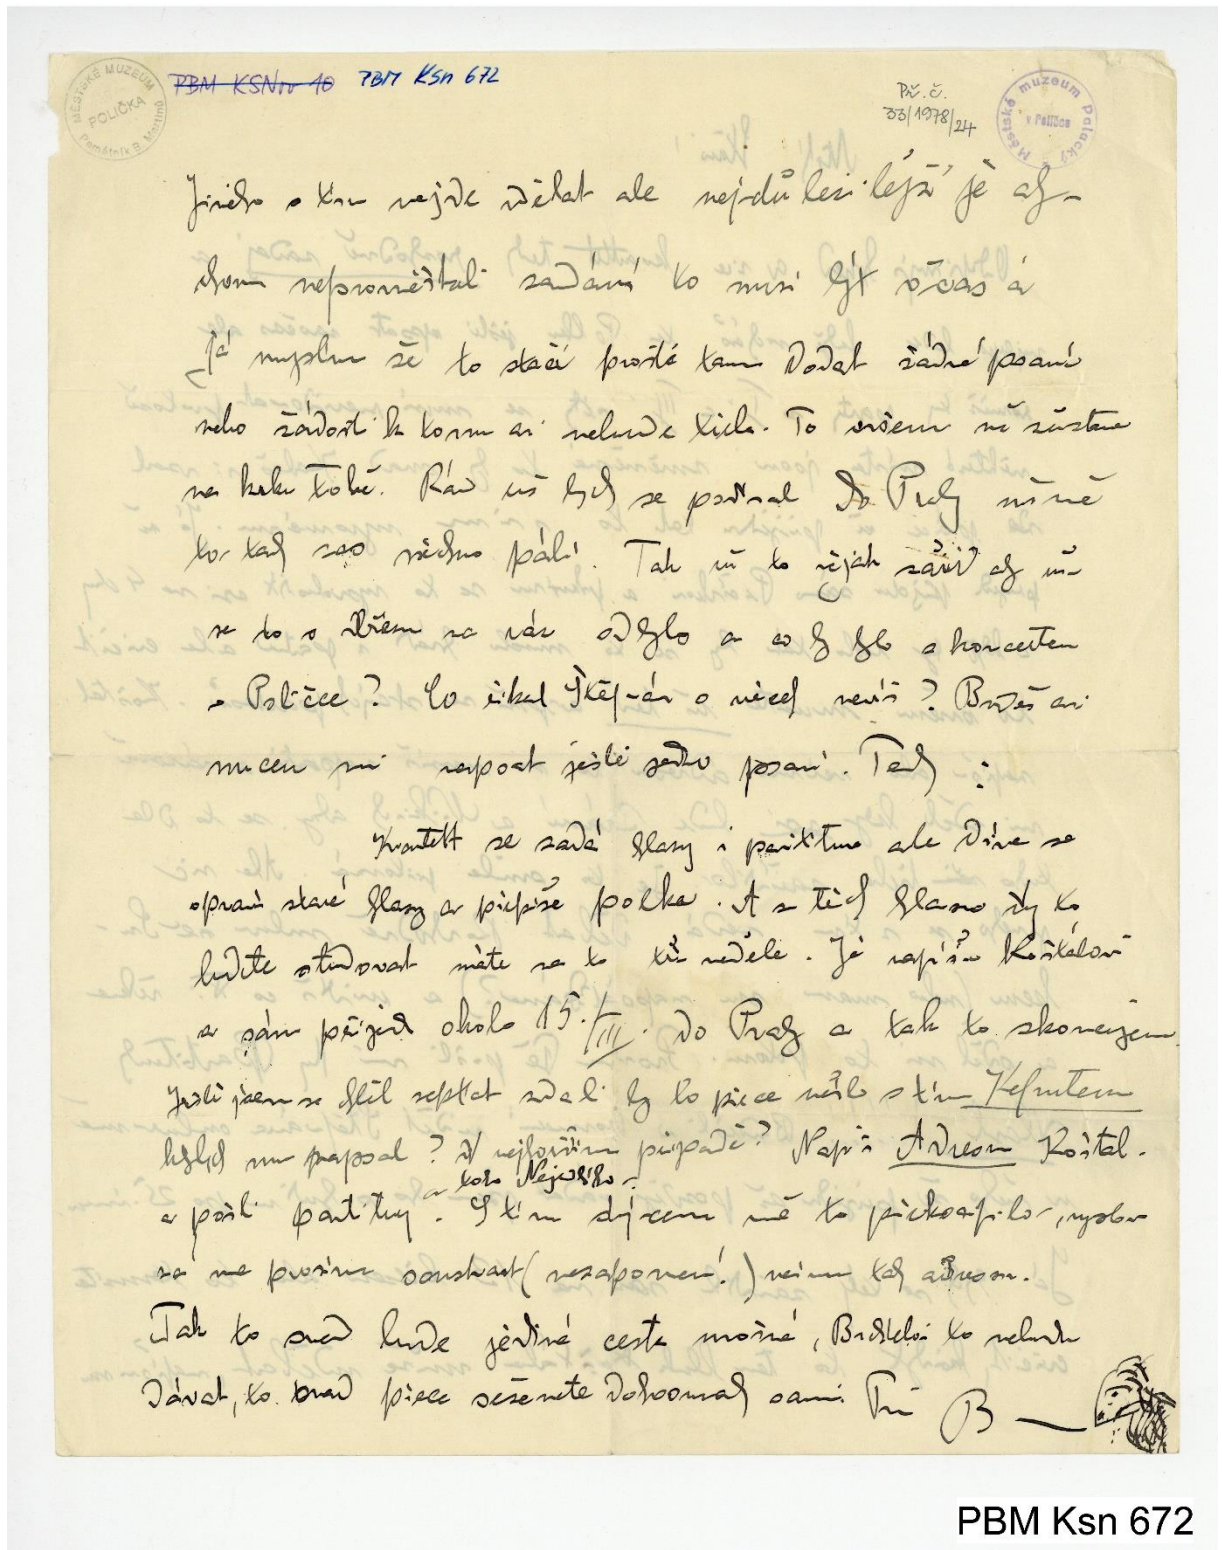 MĚSTSKÉ MUZEUM POLIČKA Památník B. Martinů
PBM KSNov 10 PBM Ksn 672
Př. č.
33/1978/24
Městské muzeum Palacký v Poličce
Jiného s tím nejde dělat ale nejdůležitější je aby-
chom nepromeškali zadání to musí být včas a
Já myslím že to stačí prostě tam dodat žádné psaní
nebo žádosti k tomu asi nebude třeba. To ovšem už zůstane
na krku Tobě. Rád už bych se podíval do Prahy už mě
to tady zas všechno pálí. Tak už to nějak zařiď aby už
se to s
na vás odbylo a co by bylo s koncertem
v Poličce? Co říkal Štěpán o věcech nevíš? Budeš asi
nucen mi napsat ještě jedno psaní. Tedy :
Kvartett se zadá hlasy i partitura ale dříve se
opraví staré hlasy a připíše polka. A z těch hlasů vy to
budete studovat máte na to tři neděle. Já napíšu Košťálovi
a sám přijedu okolo 15./III. do Prahy a tak to skoncujem.
Ještě jsem se chtěl zeptat zdali by to přece nešlo s tím
kdybych mu napsal? V nejhorším případě? Napiš Adresu Košťál.
a toho Nejedlýho
a pošli partitury. S tím
mě to překvapilo,
za mě prosím
(nezapomeň!) nevím tady adresu.
Tak to snad bude jediná cesta možná,
to nebudu
dávat, to snad přece seženete dohromady sami Tvůj B
PBM Ksn 672